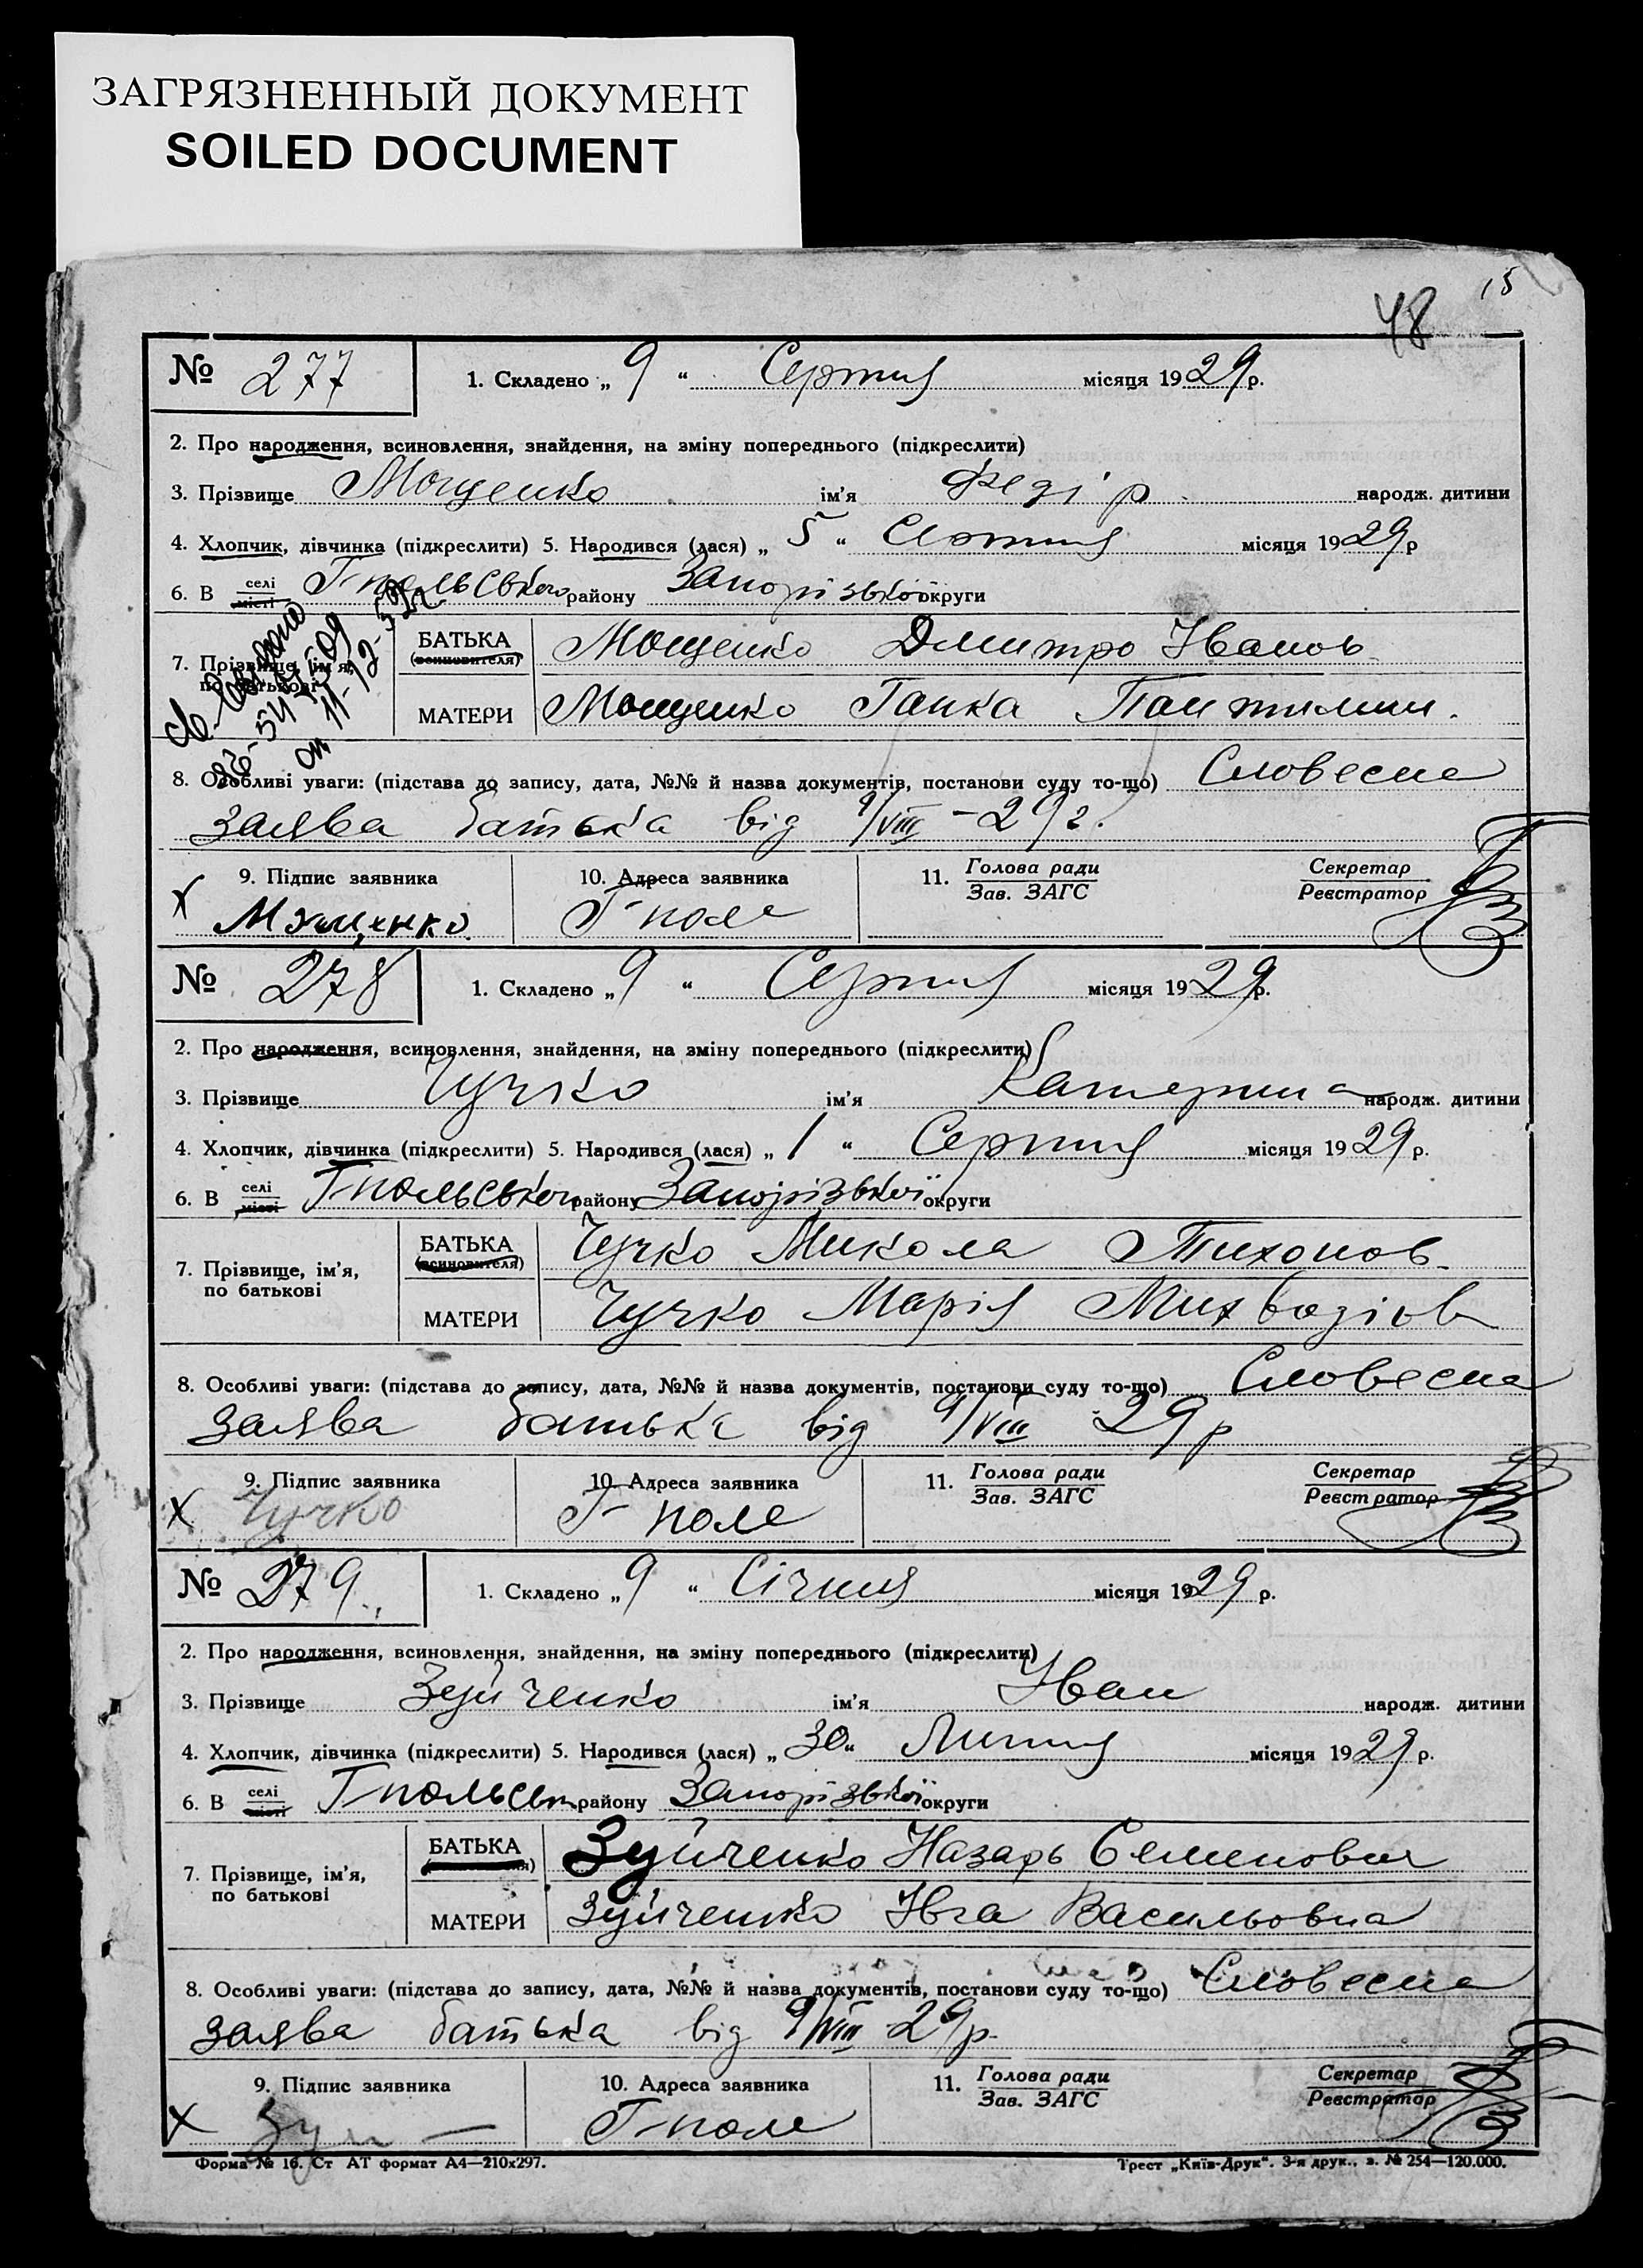 ЗАГРЯЗНЕННЫЙ ДОКУМЕНТ
SOILED DOCUMENT
15
48
№ 277 1. Складено „ 9 “ Серпня місяця 1929 р.
2. Про народження, всиновлення, знайдення, на зміну попереднього (підкреслити)
3. Прізвище Мощенко ім'я Федір народж. дитини
4. Хлопчик, дівчинка (підкреслити) 5. Народився (лася) „ 5 “ Серпня місяця 1929 р
6. В селі місті Г-польського району Запорізької округи
7. Прізвище, ім'я, по батькові
БАТЬКА (всиновителя) Мощенко Дмитро Иванов
МАТЕРИ Мощенко Ганка
8. Особливі уваги: (підстава до запису, дата, №№ й назва документів, постанови суду то-що) Словесна
заява батька від 9/VIII - 29 г.
9. Підпис заявника 10. Адреса заявника 11. Голова ради Зав. ЗАГС Секретар Реєстратор
х Мощенко Г-поле
№ 278 1. Складено „ 9 “ Серпня місяця 1929 р.
2. Про народження, всиновлення, знайдення, на зміну попереднього (підкреслити)
3. Прізвище Чучко ім'я Катерина народж. дитини
4. Хлопчик, дівчинка (підкреслити) 5. Народився (лася) „ 1 “ Серпня місяця 1929 р.
6. В селі місті Г-польського району Запорізької округи
7. Прізвище, ім'я, по батькові
БАТЬКА (всиновителя) Чучко Микола Тихонов
МАТЕРИ Чучко Марія
8. Особливі уваги: (підстава до запису, дата, №№ й назва документів, постанови суду то-що) Словесна
заява батька від 9/VIII 29 р
9. Підпис заявника 10. Адреса заявника 11. Голова ради Зав. ЗАГС Секретар Реєстратор
х Чучко Г- поле
№ 279 1. Складено „ 9 “ Січня місяця 1929 р.
2. Про народження, всиновлення, знайдення, на зміну попереднього (підкреслити)
3. Прізвище Зуйченко ім'я Иван народж. дитини
4. Хлопчик, дівчинка (підкреслити) 5. Народився (лася) „ 30 “ Липня місяця 1929 р.
6. В селі місті Г-польськ району Запорізької округи
7. Прізвище, ім'я, по батькові
БАТЬКА Зуйченко Назарь Семенович
МАТЕРИ Зуйченко Ивга Васильовна
8. Особливі уваги: (підстава до запису, дата, №№ й назва документів, постанови суду то-що) Словесна
заява батька від 9/VIII 29 р.
9. Підпис заявника 10. Адреса заявника 11. Голова ради Зав. ЗАГС Секретар Реєстратор
х Зуй Г-поле
Форма № 16. Ст АТ формат А4—210х297. Трест „Київ-Друк“. 3-я друк., з. № 254—120.000.